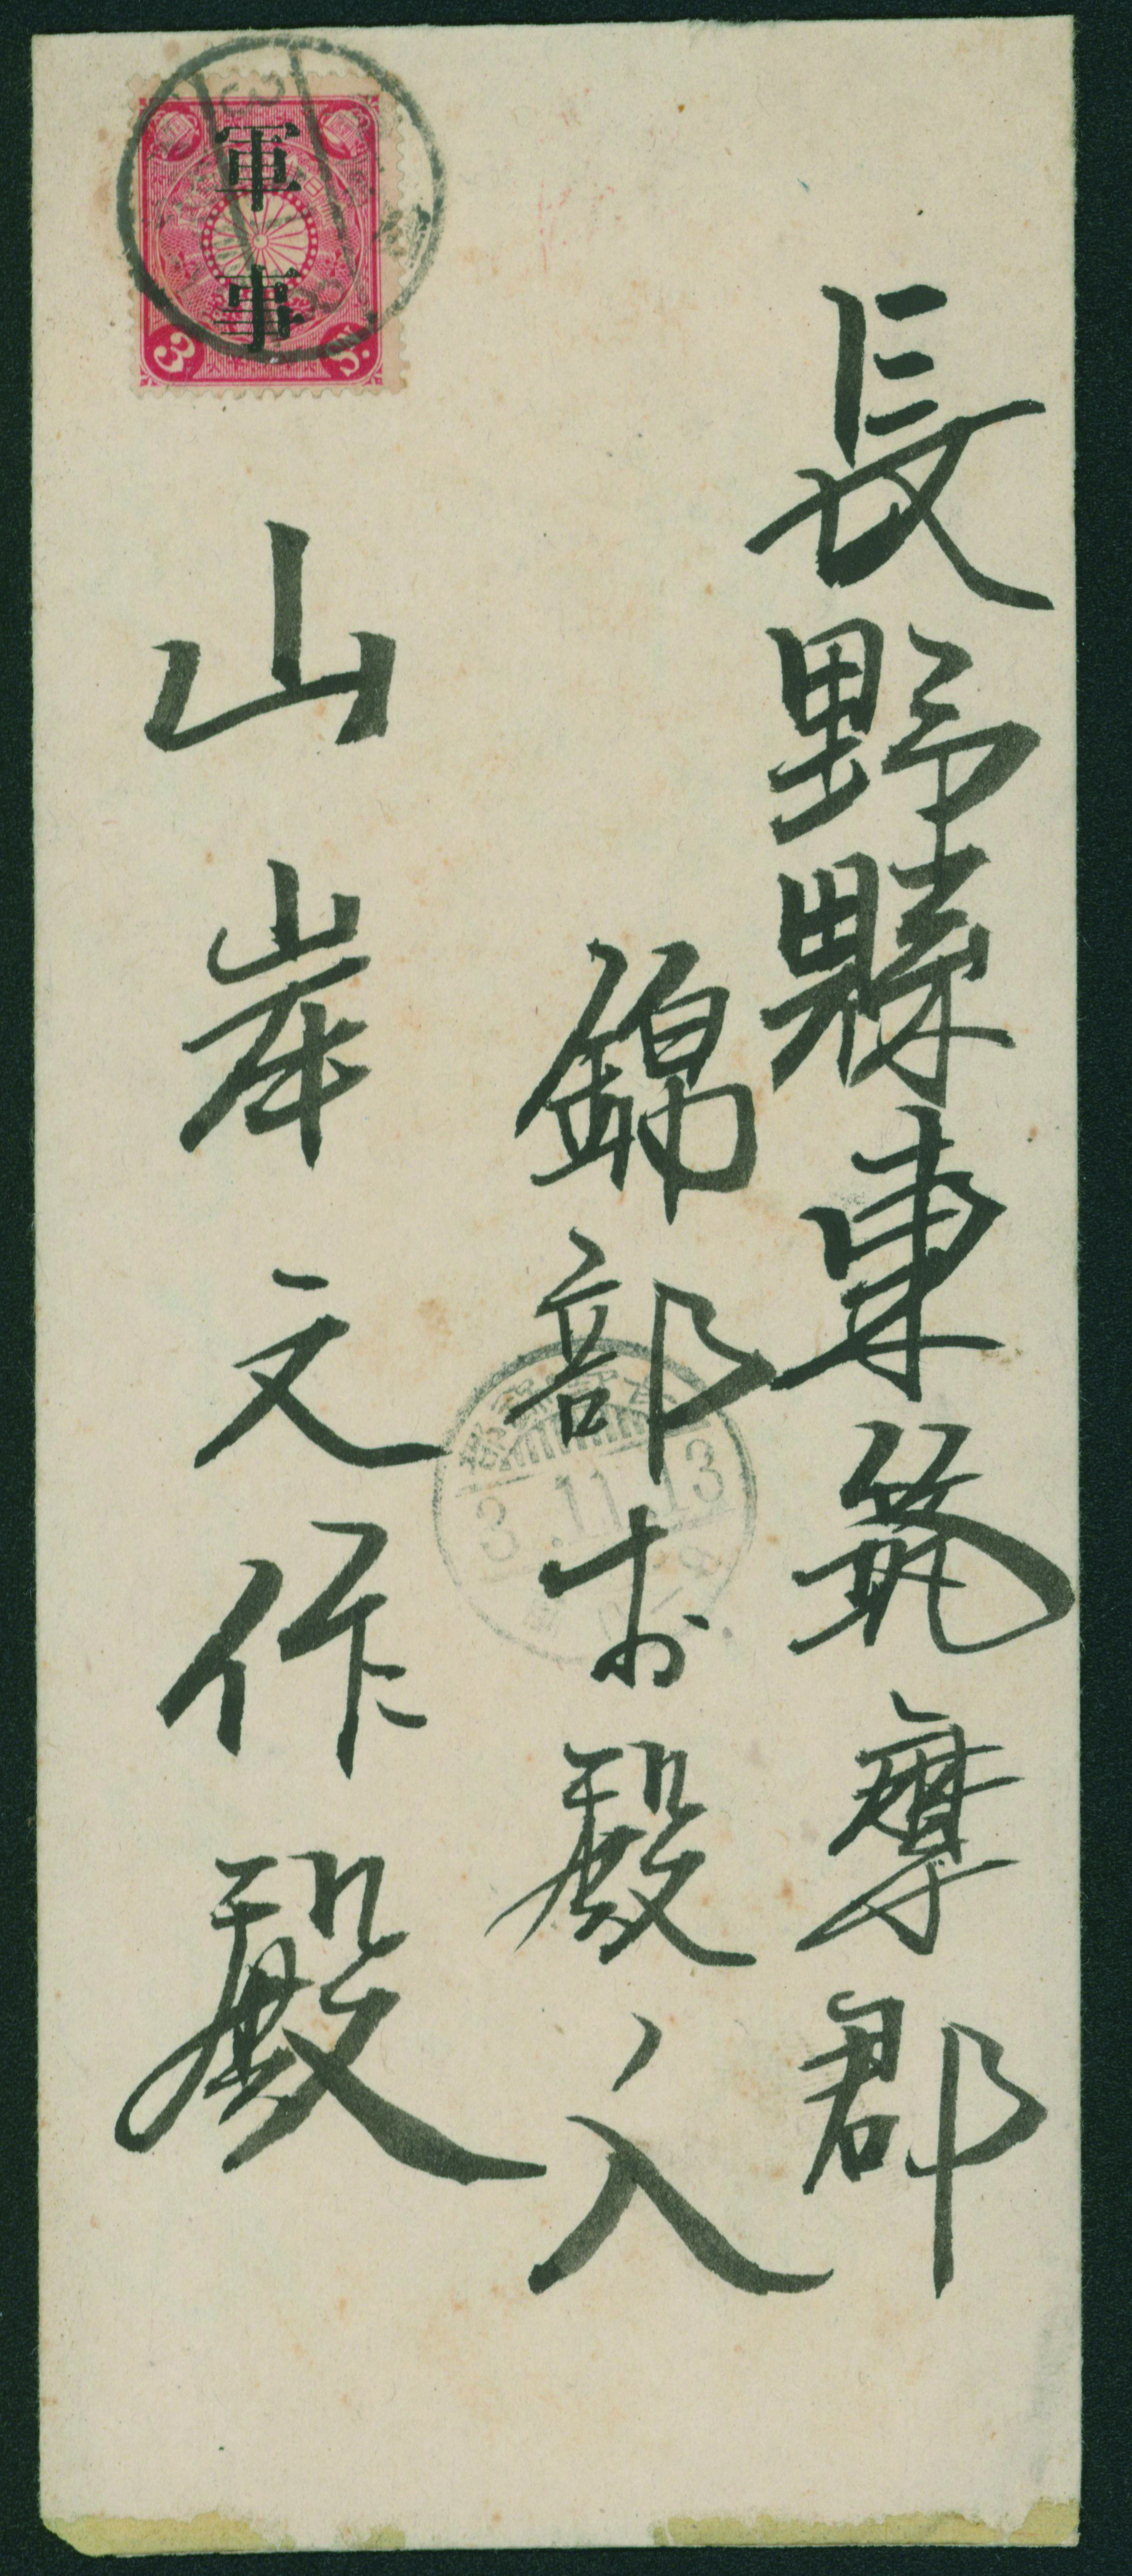 長野縣東筑摩郡
錦部村殿ノ入
山岸文作殿
軍事
3 S.
3.11.13